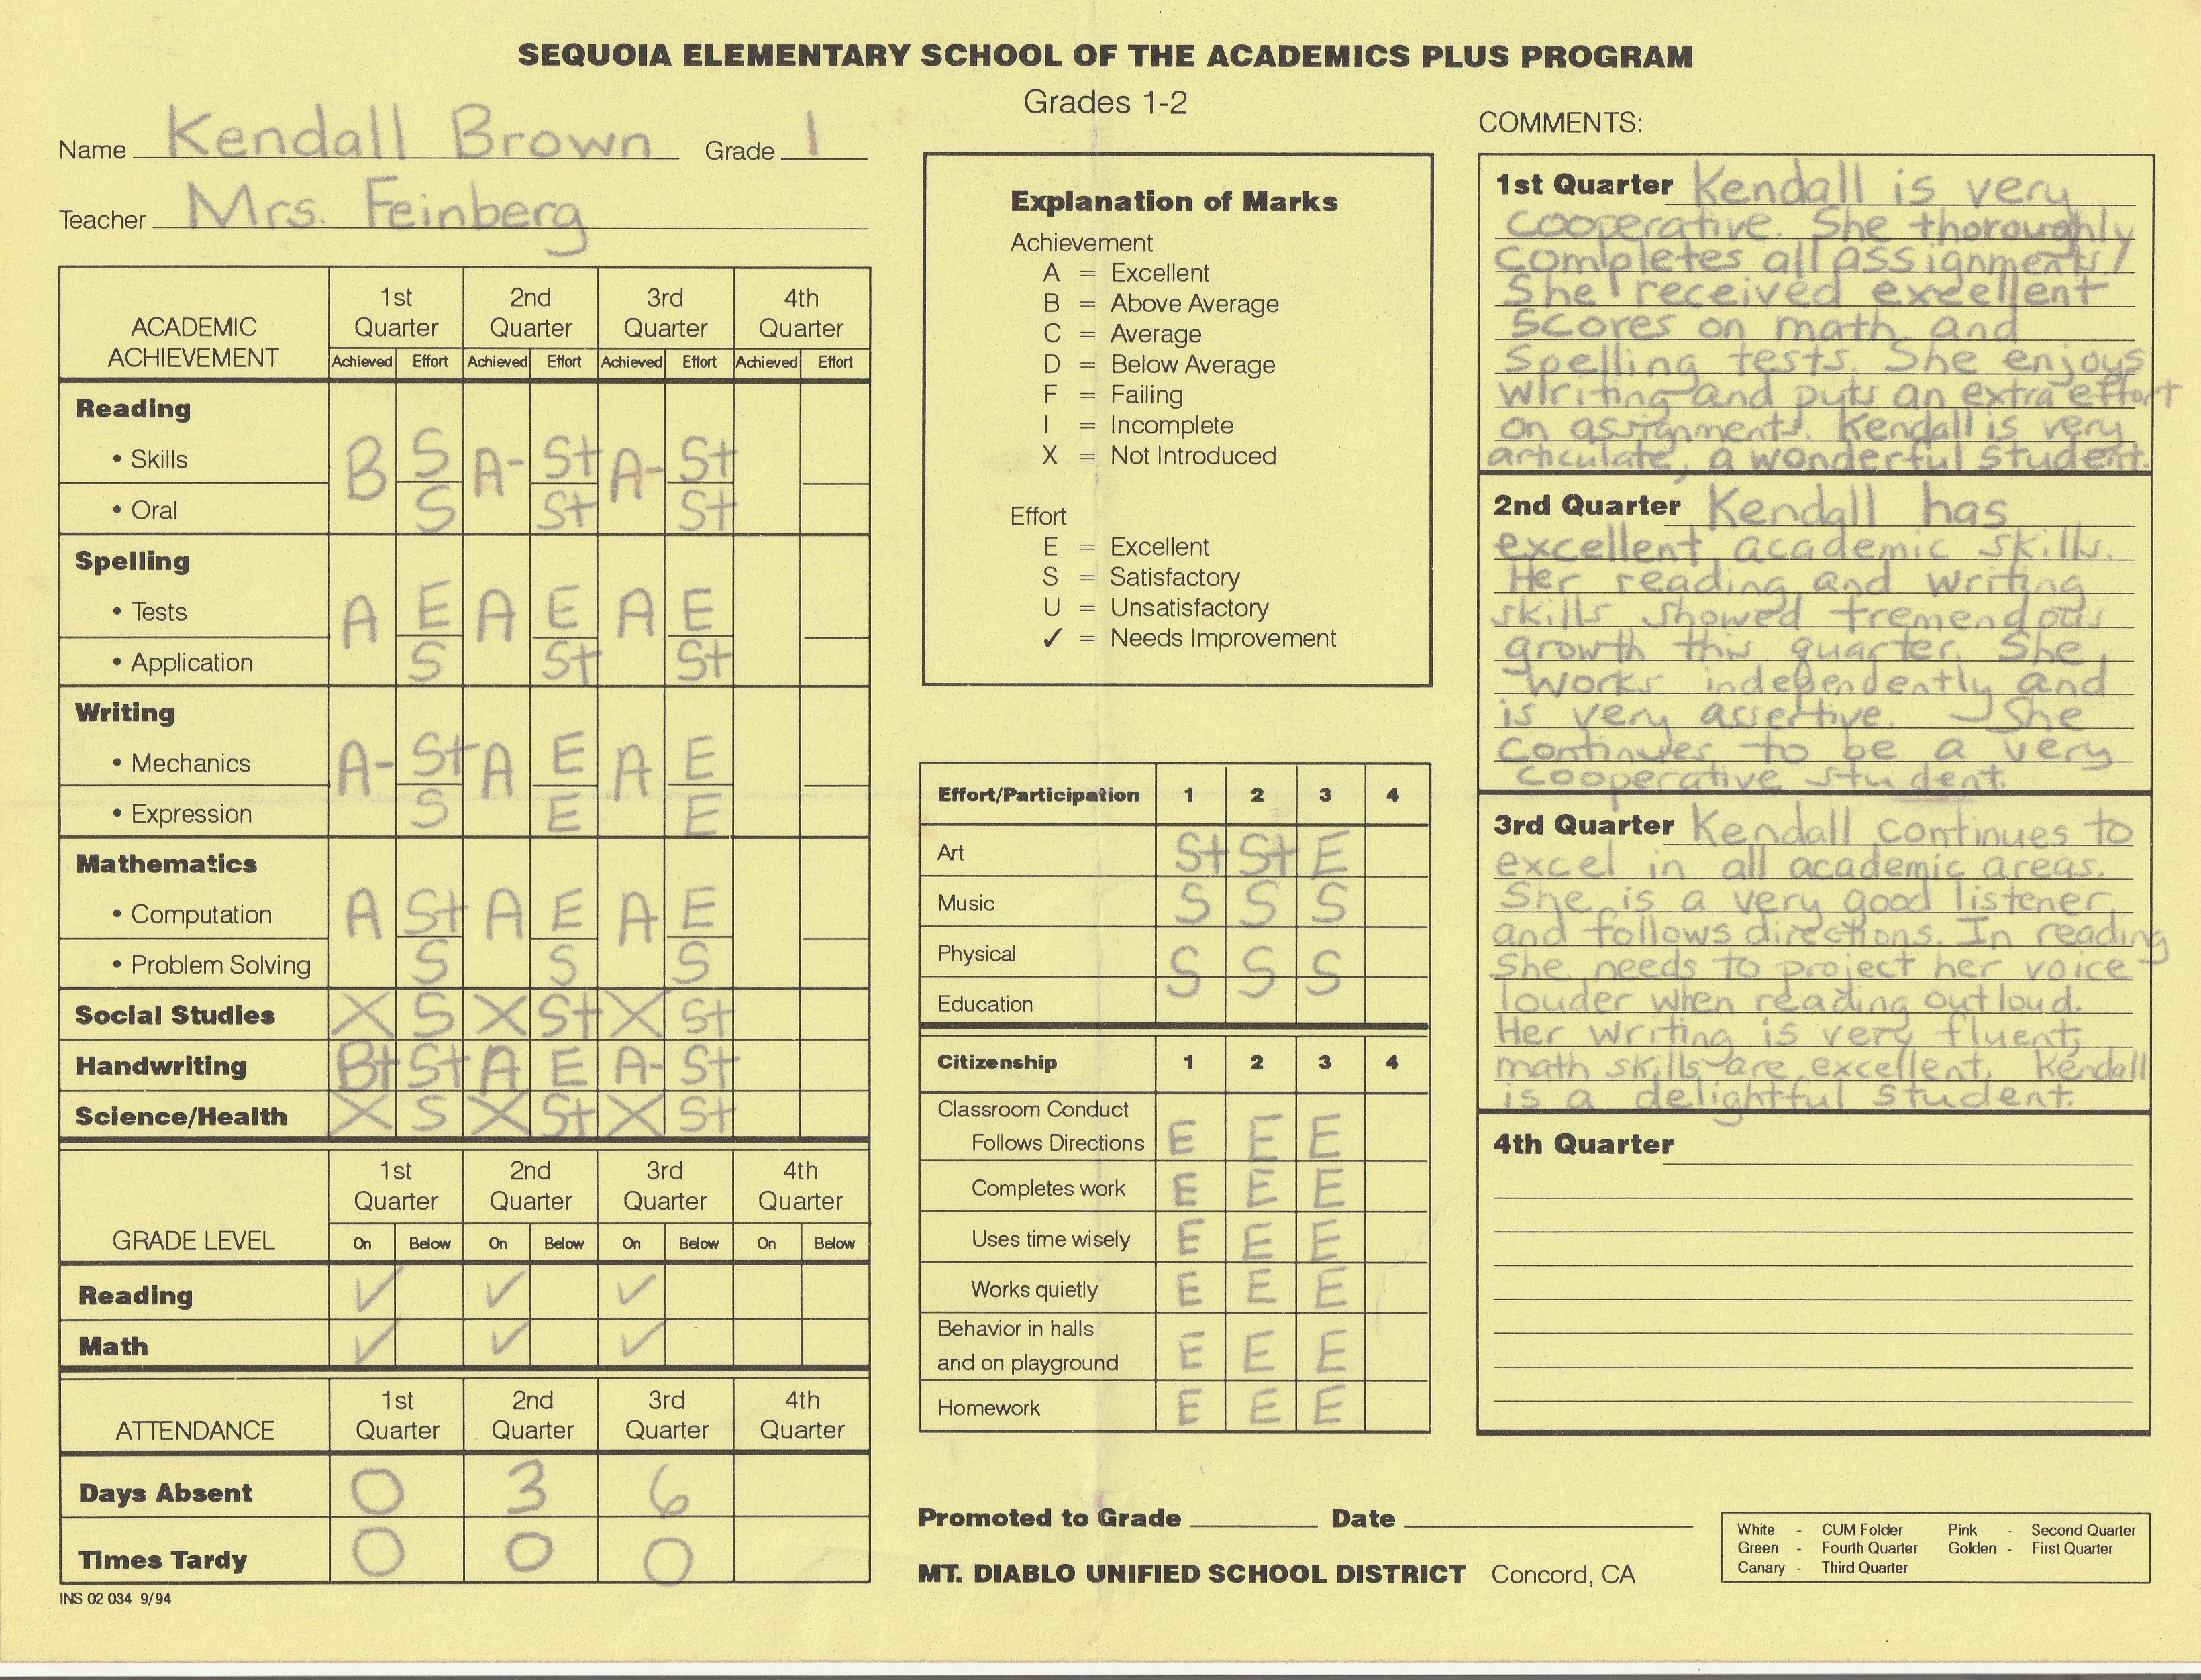 SEQUOIA ELEMENTARY SCHOOL OF THE ACADEMICS PLUS PROGRAM
Grades 1-2
Name Kendall Brown Grade 1
Teacher Mrs. Feinberg
ACADEMIC ACHIEVEMENT
1st Quarter 2nd Quarter 3rd Quarter 4th Quarter
Achieved Effort Achieved Effort Achieved Effort Achieved Effort
Reading
• Skills B S A- S+ A- S+
• Oral S S+ S+
Spelling
• Tests A E A E A E
• Application S S+ S+
Writing
• Mechanics A- S+ A E A E
• Expression S E E
Mathematics
• Computation A S+ A E A E
• Problem Solving S S S
Social Studies X S X S+ X S+
Handwriting B+ S+ A E A- S+
Science/Health X S X S+ X S+
GRADE LEVEL
1st Quarter 2nd Quarter 3rd Quarter 4th Quarter
On Below On Below On Below On Below
Reading ✓ ✓ ✓
Math ✓ ✓ ✓
ATTENDANCE
1st Quarter 2nd Quarter 3rd Quarter 4th Quarter
Days Absent 0 3 6
Times Tardy 0 0 0
INS 02 034 9/94
Explanation of Marks
Achievement
A = Excellent
B = Above Average
C = Average
D = Below Average
F = Failing
I = Incomplete
X = Not Introduced
Effort
E = Excellent
S = Satisfactory
U = Unsatisfactory
✓ = Needs Improvement
Effort/Participation 1 2 3 4
Art S+ S+ E
Music S S S
Physical
Education S S S
Citizenship 1 2 3 4
Classroom Conduct
Follows Directions E E E
Completes work E E E
Uses time wisely E E E
Works quietly E E E
Behavior in halls
and on playground E E E
Homework E E E
Promoted to Grade Date
MT. DIABLO UNIFIED SCHOOL DISTRICT Concord, CA
COMMENTS:
1st Quarter Kendall is very
cooperative. She thoroughly
completes all assignments!
She received excellent
scores on math and
spelling tests. She enjoys
writing and puts an extra effort
on assignments. Kendall is very
articulate, a wonderful student.
2nd Quarter Kendall has
excellent academic skills.
Her reading and writing
skills showed tremendous
growth this quarter. She
works independently and
is very assertive. She
continues to be a very
cooperative student.
3rd Quarter Kendall continues to
excel in all academic areas.
She is a very good listener
and follows directions. In reading
she needs to project her voice
louder when reading out loud.
Her writing is very fluent,
math skills are excellent. Kendall
is a delightful student.
4th Quarter
White - CUM Folder Pink - Second Quarter
Green - Fourth Quarter Golden - First Quarter
Canary - Third Quarter